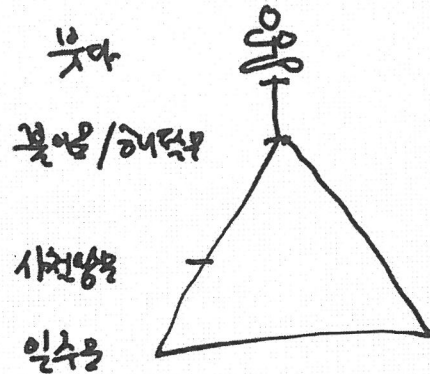 붓다
불이문/해탈문
사천왕문
일주문